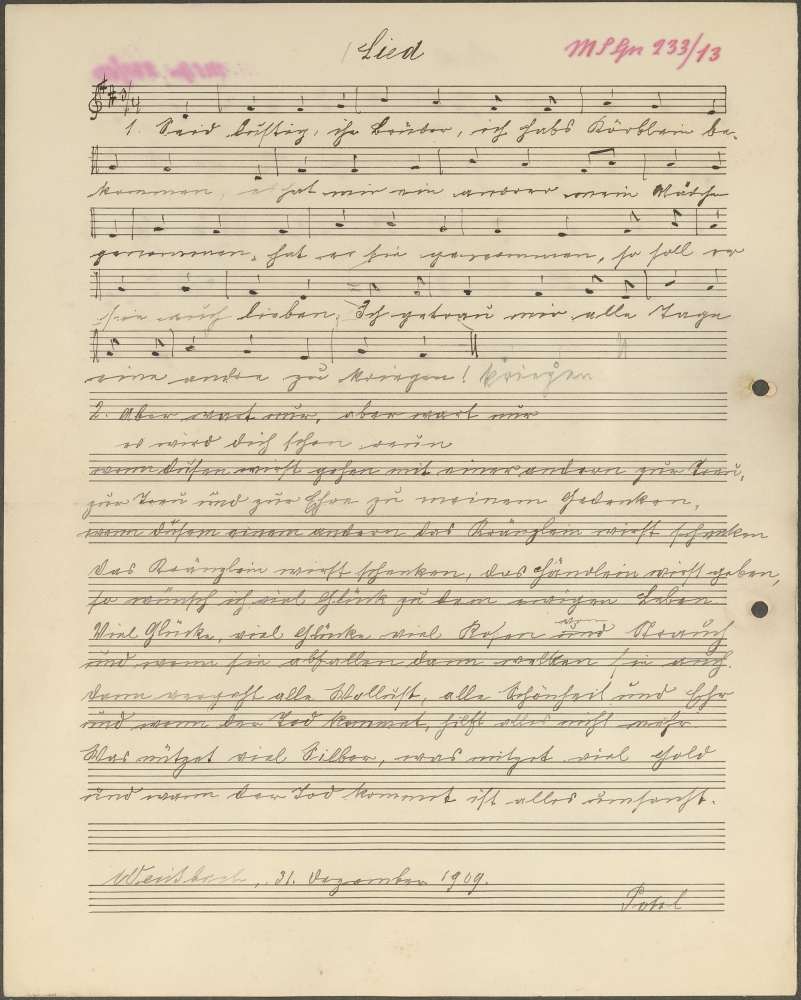 Lied
MS Gn 233/13
1. Seid lustig, ihr Brüder, ich habs Körblein be-
kommen, es hat mir ein anderer mein Mädchen
genommen, hat er sie genommen, so soll er
sie auch lieben. Ich getrau mir alle Tage
eine andre zu kriegen! kriegen
2. Aber wart nur, aber wart nur
es wird dich schon reun
wenn du sehen wirst gehen mit einer andern zur Treu,
zur Treu und zur Ehre zu meinem Gedenken,
wenn einem andern das Kränzlein wirst schenken
das Kränzlein wirst schenken, das Händlein wirst geben,
so wünsch ich viel Glück zu dem ewigen Leben
Viel Glücke, viel Glücke viel Rosen und vom Strauch
und wenn sie abfallen dann welken sie auch.
dann vergeht alle Wollust, alle Schönheit und Ehr
und wenn der Tod kommet, hilft alles nicht mehr
Was nützet viel Silber, was nützet viel Gold
und wann der Tod kommt ist alles umsonst.
31. Dezember 1909.